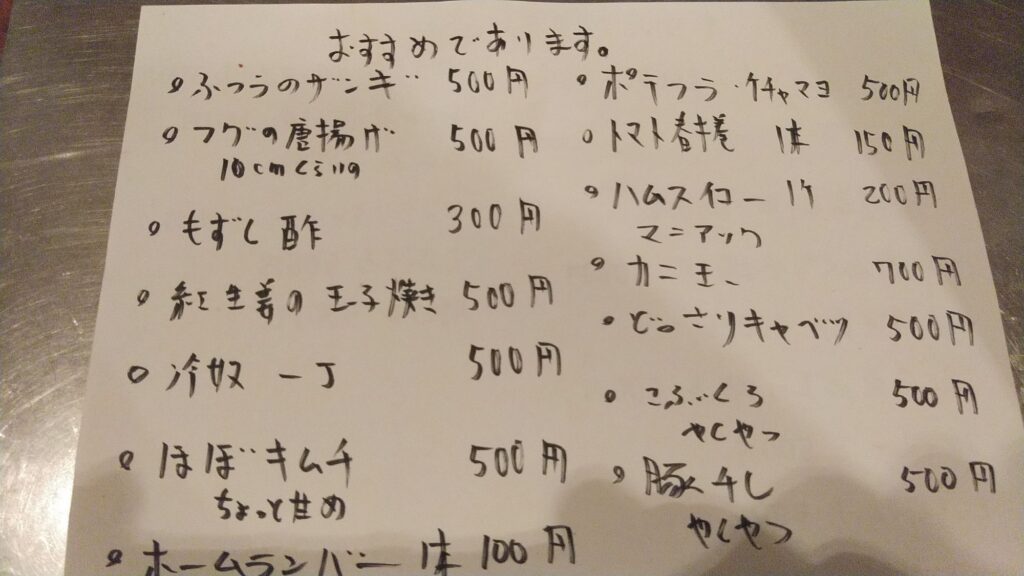 おすすめであります。
ふつうのザンギ 500円
フグの唐揚げ 500円
10cmくらいの
もずく酢 300円
紅生姜の玉子焼き 500円
冷奴 一丁 500円
ほぼキムチ 500円
ちょっと甘め
ホームランバー 1本 100円
ポテフラ・ケチャマヨ 500円
トマト春巻 1本 150円
ハムスイロー 1ケ 200円
マニアック
カニ玉 700円
どっさりキャベツ 500円
こぶくろ 500円
やくやつ
豚チレ 500円
やくやつ